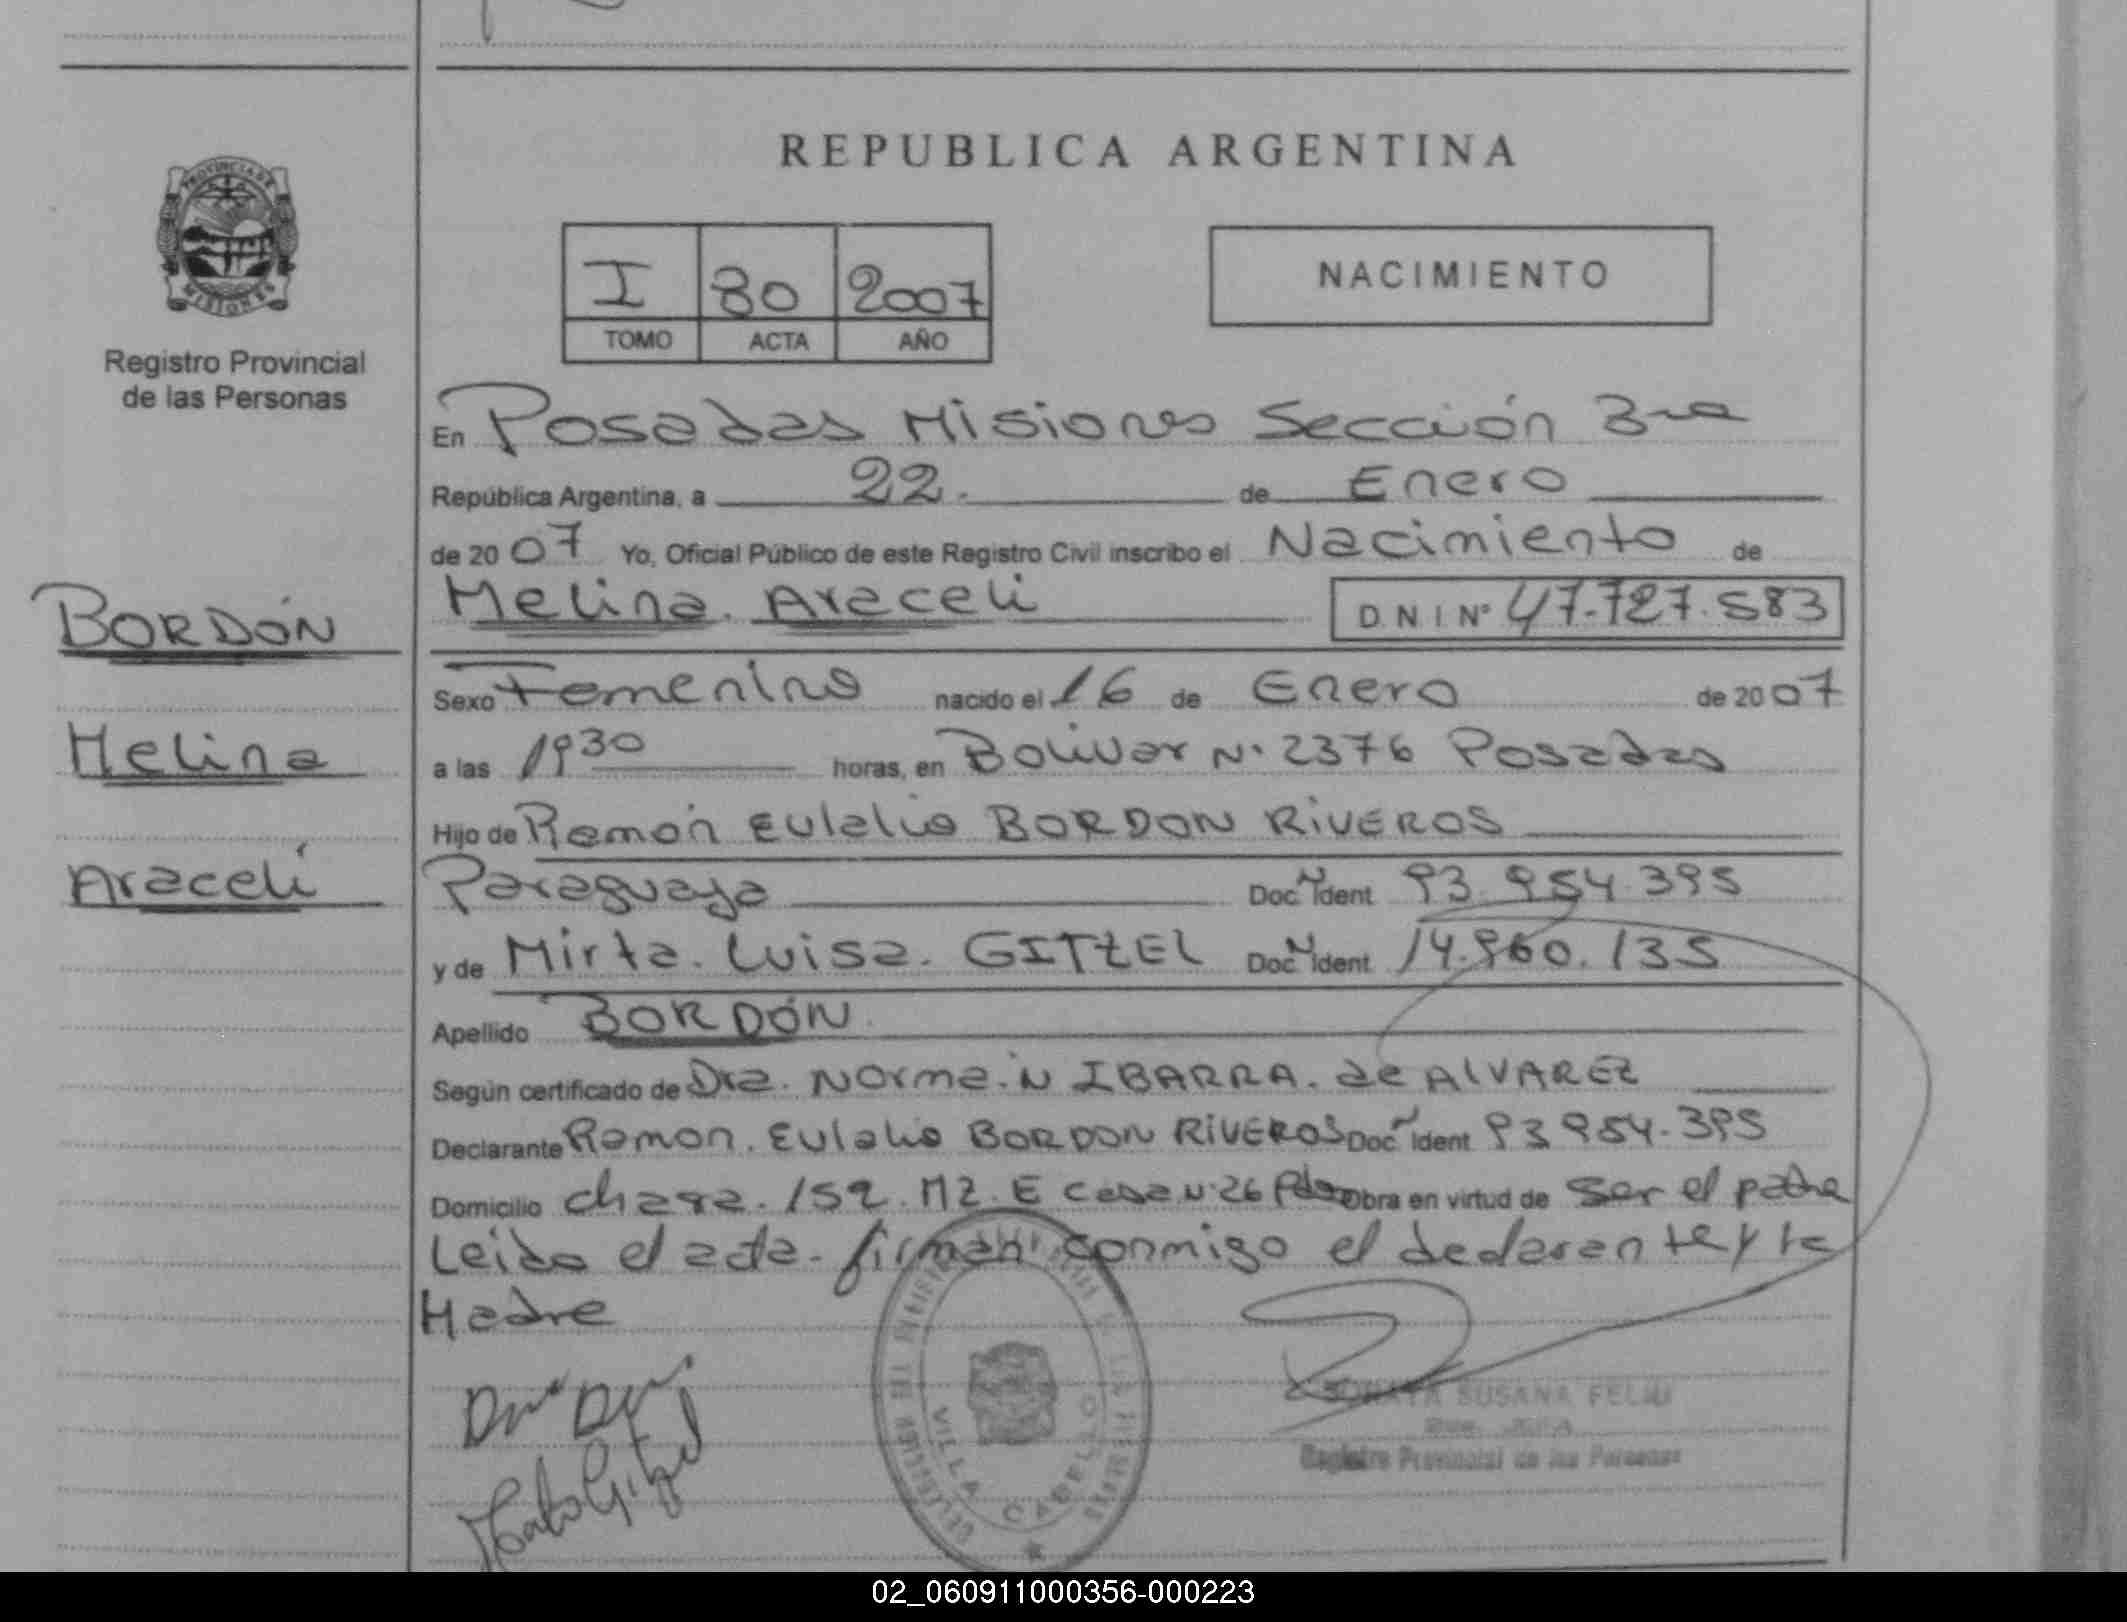 REPUBLICA ARGENTINA
PROVINCIA DE
MISIONES
Registro Provincial
de las Personas
I 80 2007
TOMO ACTA AÑO
NACIMIENTO
En Posadas Misiones Sección 3ra
República Argentina, a 22. de Enero
de 2007 Yo, Oficial Público de este Registro Civil inscribo el Nacimiento de
BORDÓN
Melina
Araceli
Melina. Araceli D.N.I Nº 47.727.583
Sexo Femenino nacido el 16 de Enero de 2007
a las 19 30 horas, en Bolivar Nº 2376 Posadas
Hijo de Ramón Eulalio BORDON RIVEROS
Paraguaya Doc. Ident 93.954.395
y de Mirta. Luisa. GITZEL Doc. Ident 14.960.135
Apellido BORDÓN.
Según certificado de Dra. Norma. N IBARRA. de ALVAREZ
Declarante Ramon. Eulalio BORDON RIVEROS Doc. Ident 93 954.395
Domicilio chacra. 152. MZ. E casa Nº 26 Pdas Obra en virtud de ser el padre
Leida el acta. firman conmigo el declarante y la
Madre
VILLA CABELLO
SORAYA SUSANA FELIU
Registro Provincial de las Personas
02_060911000356-000223